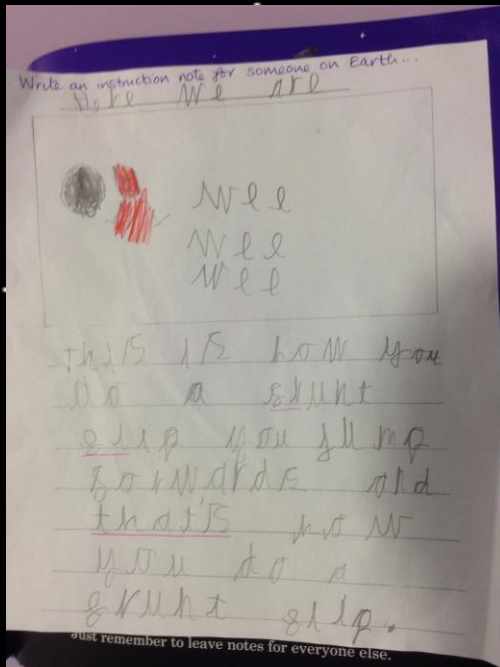 Write an instruction note for someone on Earth...
Here we are
wee
wee
wee
this is how you
do a frunt
flip you jump
forwards and
that's how
you do a
frunt flip.
Just remember to leave notes for everyone else.